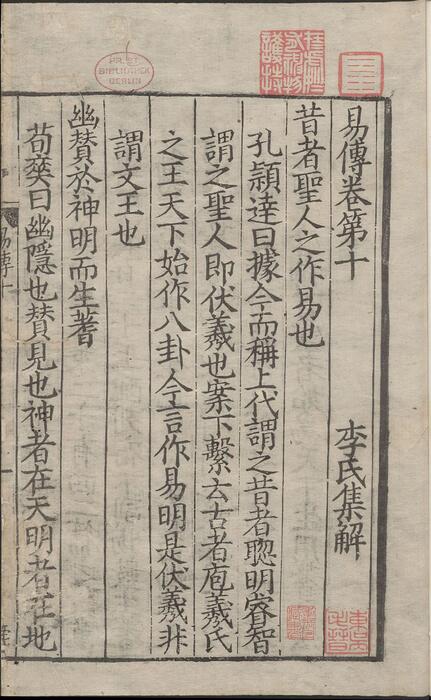 易傳卷第十 李氏集解
昔者聖人之作易也
孔頴逹曰據今而稱上代謂之昔者聦明睿智
謂之聖人即伏羲也案下繫云古者庖羲氏
之王天下始作八卦今言作易明是伏羲非
謂文王也
幽賛於神明而生蓍
荀爽曰幽隱也賛見也神者在天明者在地
易傳十
PR. ST.
BIBLIOTHEK
BERLIN